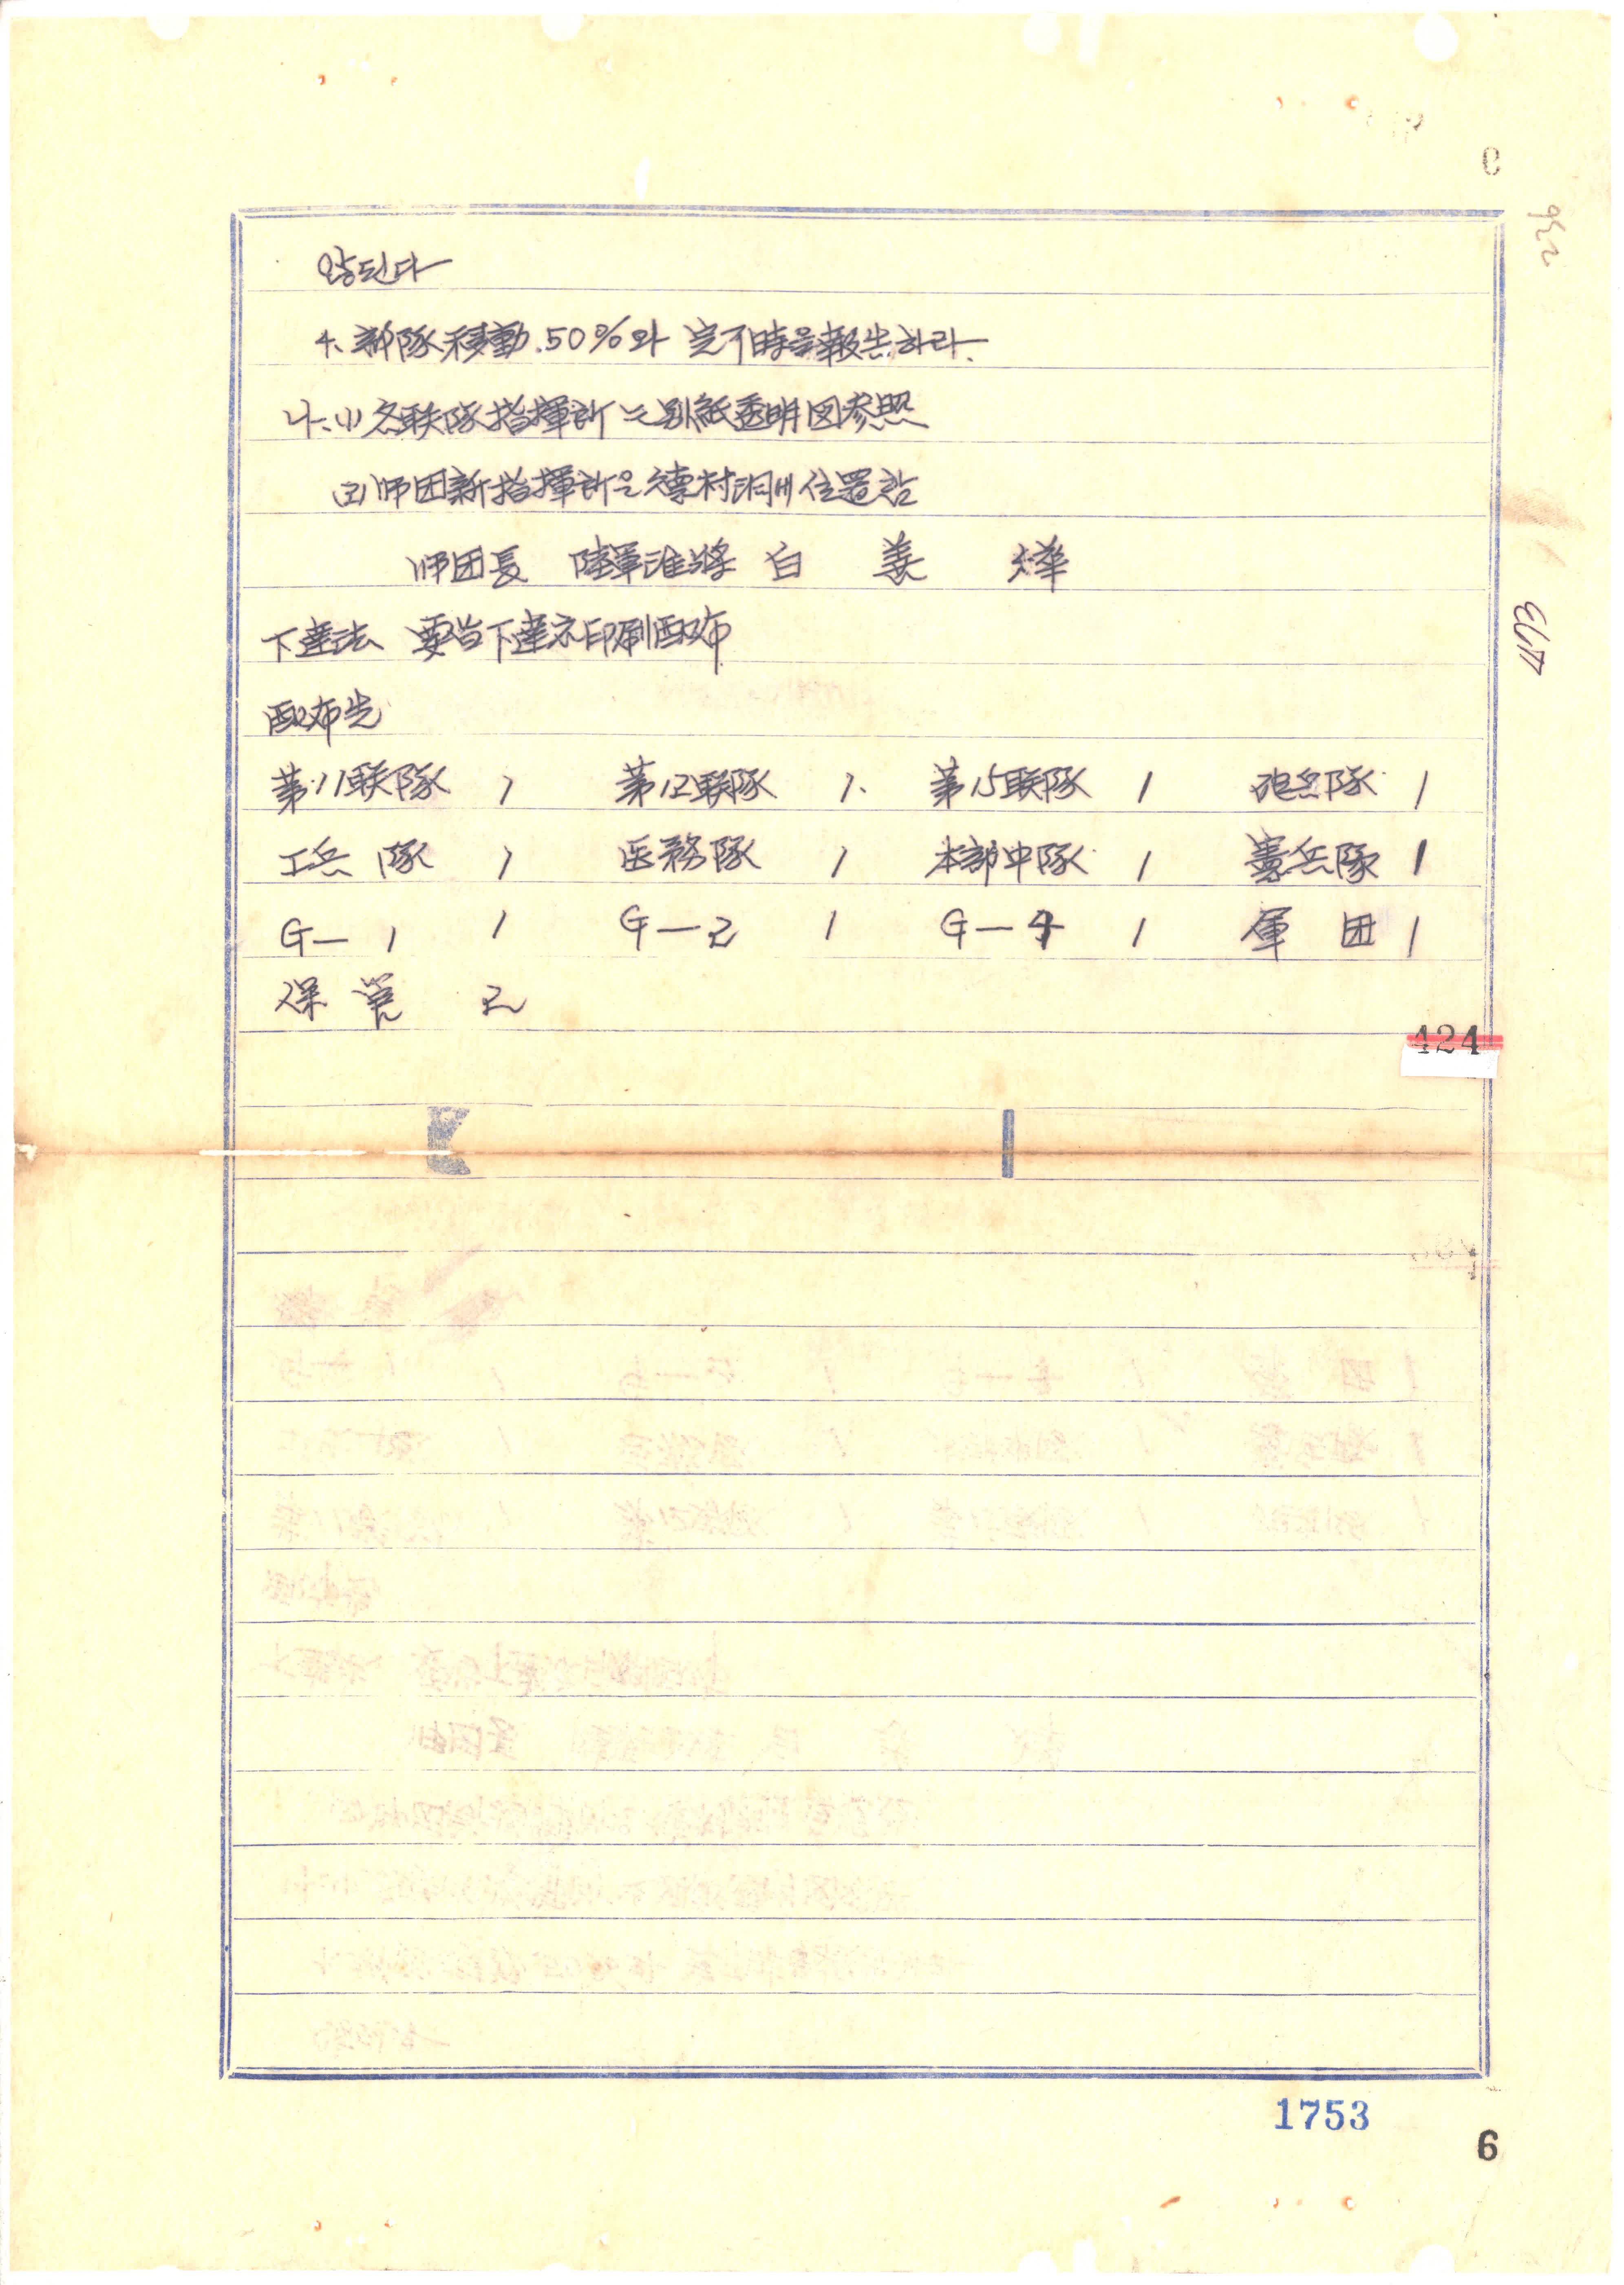 않된다
4. 部隊移動.50%와 完了時를 報告하라.
나. (1) 各联隊指揮所는 別紙透明図参照
(2) 师团新指揮所은 德村洞에 位置함
师团長 陸軍准將 白 善 燁
下達法 要旨下達后印刷配布
配布先
第11联隊 1 第12联隊 1. 第15联隊 1 砲兵隊 1
工兵隊 1 医務隊 1 本部中隊 1 憲兵隊 1
G-1 1 G-2 1 G-4 1 軍团 1
保管 2
424
1753
6